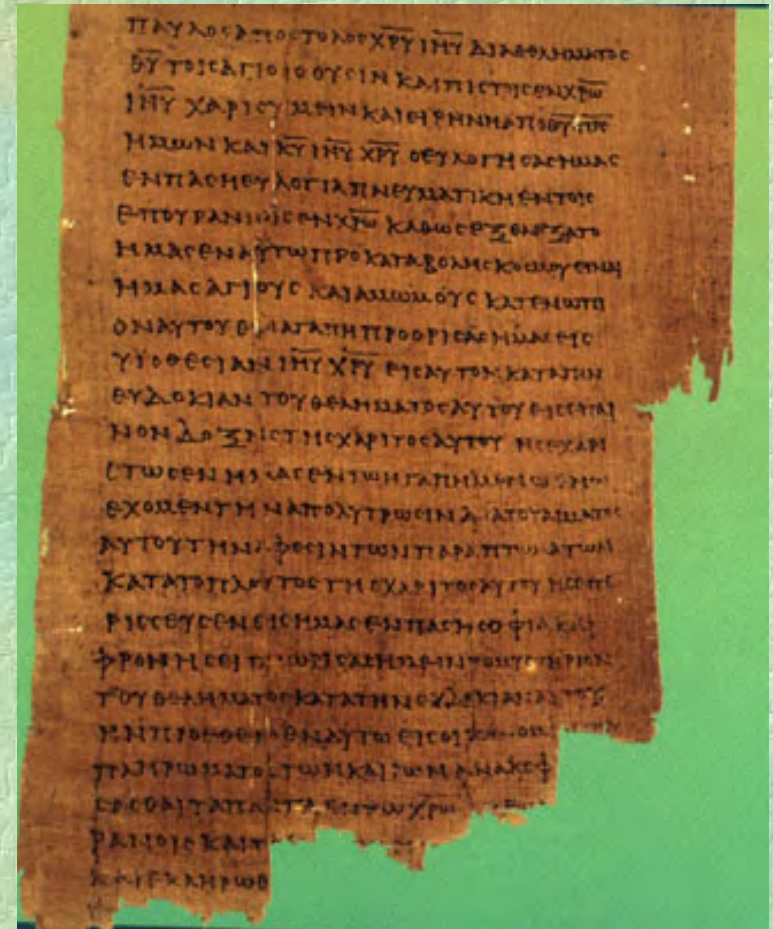 ΠΑΥΛΟΣ ΑΠΟΣΤΟΛΟΣ ΧΡΥ ΙΗΥ ΔΙΑ ΘΕΛΗΜΑΤΟΣ
ΘΥ ΤΟΙΣ ΑΓΙΟΙΣ ΟΥΣΙΝ ΚΑΙ ΠΙΣΤΟΙΣ ΕΝ ΧΡΩ
ΙΗΥ ΧΑΡΙΣ ΥΜΕΙΝ ΚΑΙ ΕΙΡΗΝΗ ΑΠΟ ΘΥ ΠΡΣ
ΗΜΩΝ ΚΑΙ ΚΥ ΙΗΥ ΧΡΥ Ο ΕΥΛΟΓΗΣΑΣ ΗΜΑΣ
ΕΝ ΠΑΣΗ ΕΥΛΟΓΙΑ ΠΝΕΥΜΑΤΙΚΗ ΕΝ ΤΟΙΣ
ΕΠΟΥΡΑΝΙΟΙΣ ΕΝ ΧΡΩ ΚΑΘΩΣ ΕΞΕΛΕΞΑΤΟ
ΗΜΑΣ ΕΝ ΑΥΤΩ ΠΡΟ ΚΑΤΑΒΟΛΗΣ ΚΟΣΜΟΥ ΕΙΝΑΙ
ΗΜΑΣ ΑΓΙΟΥΣ ΚΑΙ ΑΜΩΜΟΥΣ ΚΑΤΕΝΩΠΙ
ΟΝ ΑΥΤΟΥ ΕΝ ΑΓΑΠΗ ΠΡΟΟΡΙΣΑΣ ΗΜΑΣ ΕΙΣ
ΥΙΟΘΕΣΙΑΝ ΙΗΥ ΧΡΥ ΕΙΣ ΑΥΤΟΝ ΚΑΤΑ ΤΗΝ
ΕΥΔΟΚΙΑΝ ΤΟΥ ΘΕΛΗΜΑΤΟΣ ΑΥΤΟΥ ΕΙΣ ΕΠΑΙ
ΝΟΝ ΔΟΞΗΣ ΤΗΣ ΧΑΡΙΤΟΣ ΑΥΤΟΥ ΗΣ ΕΧΑΡΙ
ΤΩΣΕΝ ΗΜΑΣ ΕΝ ΤΩ ΗΓΑΠΗΜΕΝΩ ΕΝ Ω
ΕΧΟΜΕΝ ΤΗΝ ΑΠΟΛΥΤΡΩΣΙΝ ΔΙΑ ΤΟΥ ΑΙΜΑΤΟΣ
ΑΥΤΟΥ ΤΗΝ ΑΦΕΣΙΝ ΤΩΝ ΠΑΡΑΠΤΩΜΑΤΩΝ
ΚΑΤΑ ΤΟ ΠΛΟΥΤΟΣ ΤΗΣ ΧΑΡΙΤΟΣ ΑΥΤΟΥ ΗΣ ΕΠΕ
ΡΙΣΣΕΥΣΕΝ ΕΙΣ ΗΜΑΣ ΕΝ ΠΑΣΗ ΣΟΦΙΑ ΚΑΙ
ΦΡΟΝΗΣΕΙ ΓΝΩΡΙΣΑΣ ΗΜΕΙΝ ΤΟ ΜΥΣΤΗΡΙΟΝ
ΤΟΥ ΘΕΛΗΜΑΤΟΣ ΚΑΤΑ ΤΗΝ ΕΥΔΟΚΙΑΝ ΑΥΤΟΥ
ΗΝ ΠΡΟΕΘΕΤΟ ΕΝ ΑΥΤΩ ΕΙΣ
ΠΛΗΡΩΜΑΤΟΣ ΤΩΝ ΚΑΙΡΩΝ ΑΝΑΚΕΦ
ΣΑΣΘΑΙ ΤΑ ΠΑΝΤΑ ΕΝ ΤΩ ΧΡΩ
ΡΑΝΟΙΣ ΚΑΙ Τ
ΚΑΙ ΕΚΛΗΡΩΘ